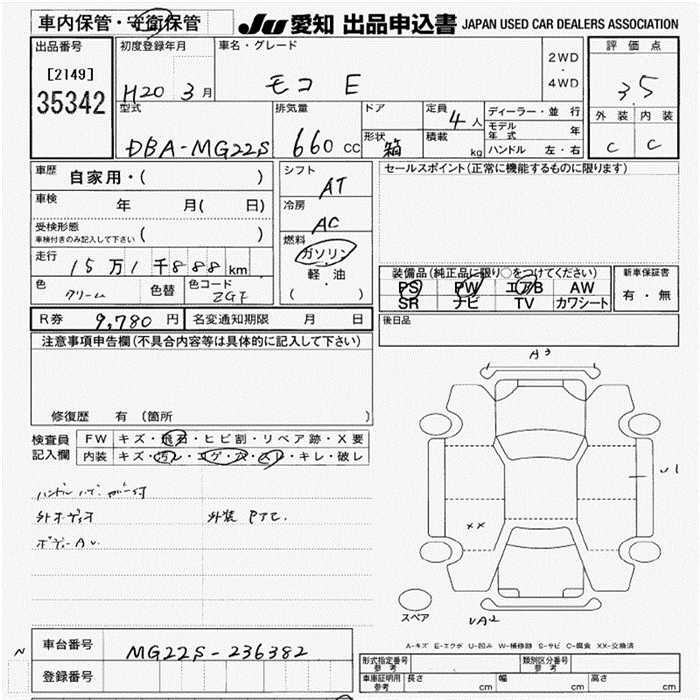 車内保管・守衛保管
JU 愛知 出品申込書 JAPAN USED CAR DEALERS ASSOCIATION
出品番号
[2149]
35342
初度登録年月
H20 3月
車名・グレード
モコ E
2WD
・
4WD
評価点
3.5
外装 内装
C C
型式
DBA-MG22S
排気量
660 cc
ドア
形状
箱
定員
4人
積載
kg
ディーラー・並行
モデル年式 年
ハンドル 左・右
車歴
自家用・( )
車検
年 月( 日)
受検形態
車検付きのみ記入して下さい ( )
走行
15万1千888km
色
クリーム
色替
色コード
ZGF
シフト
AT
冷房
AC
燃料
ガソリン
軽・油
( )
セールスポイント(正常に機能するものに限ります)
装備品(純正品に限り○をつけてください)
PS PW エアB AW
SR ナビ TV カワシート
新車保証書
有・無
R券 9,780円 名変通知期限 月 日
後日品
注意事項申告欄(不具合内容等は具体的に記入して下さい)
修復歴 有(箇所 )
検査員
記入欄
FW キズ・飛石・ヒビ割・リペア跡・X要
内装 キズ・汚レ・コゲ・穴・スレ・キレ・破レ
外オーディオ
外装 PTC.
ボディーAU.
A3
U1
XX
UA2
スペア
A-キズ E-エクボ U-凹み W-補修跡 S-サビ C-腐食 XX-交換済
N
車台番号
MG22S-236382
登録番号
型式指定番号
参考
類別区分番号
参考
車庫証明用
参考
長さ cm 幅 cm 高さ cm